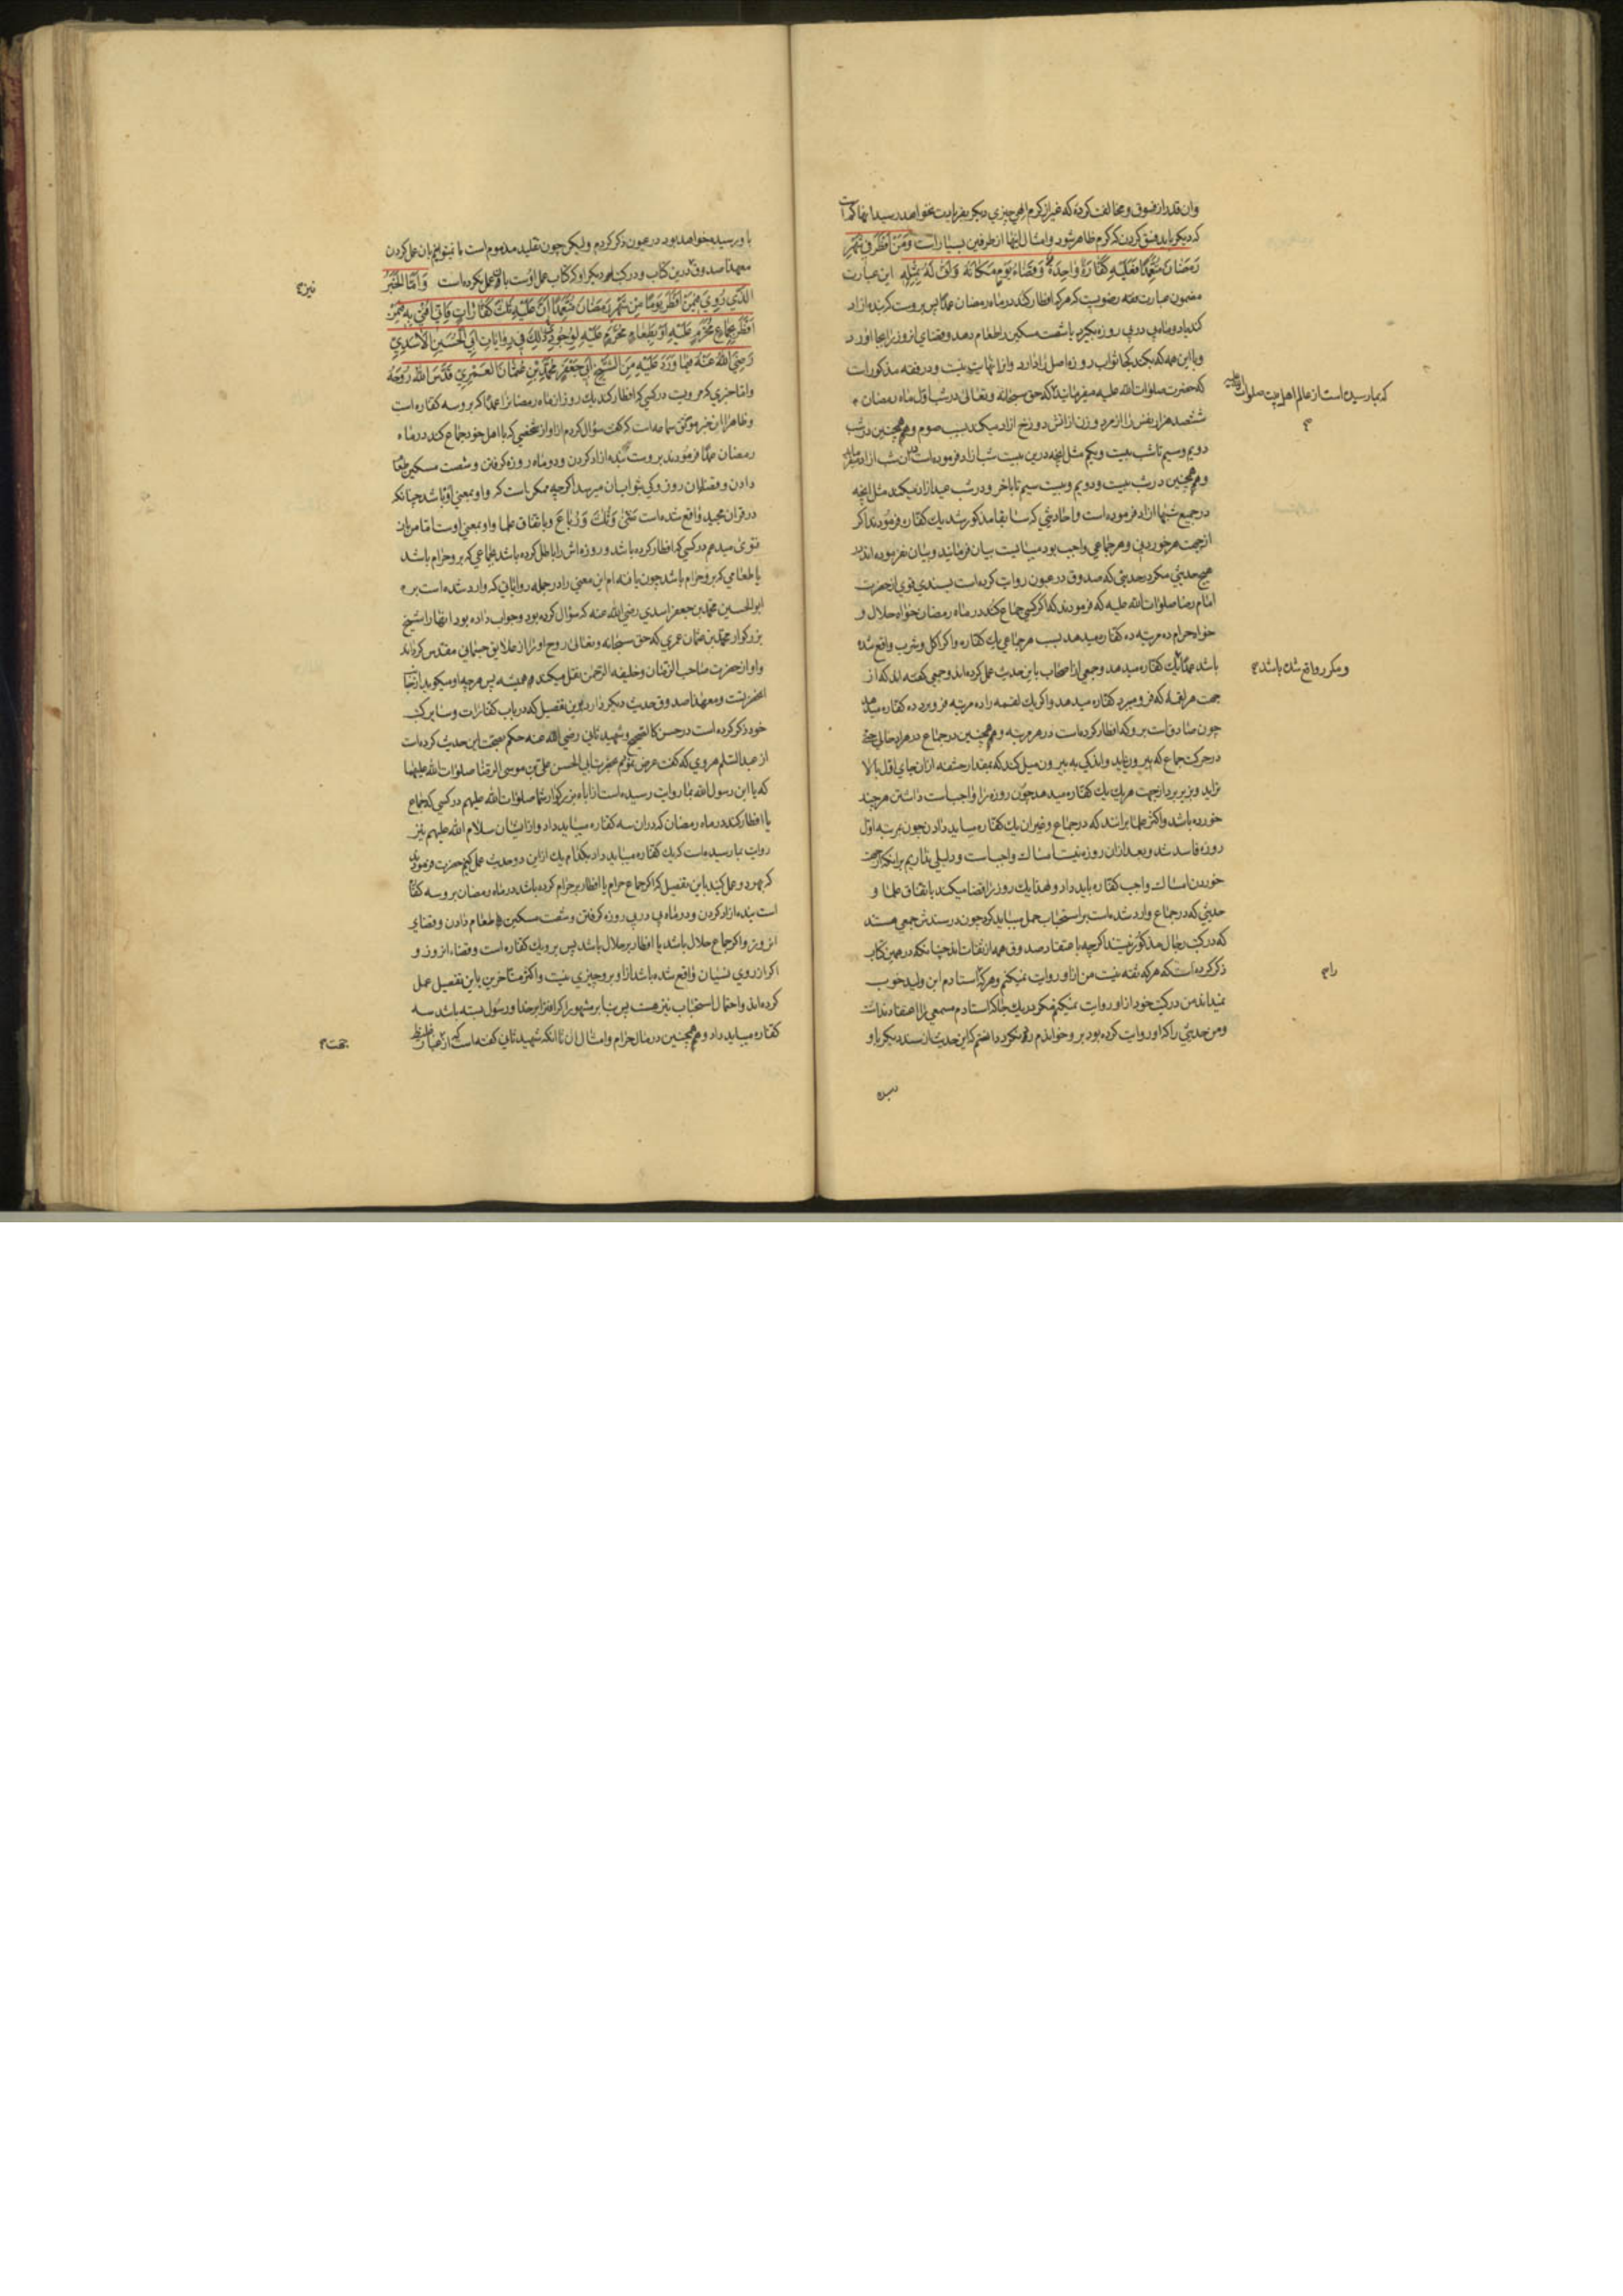 وان قدر از فسوق و مخالفت کرده که غیر از کرم الهی چیزی دیگر بفریادت نخواهد رسید اینها کجاست
که دیگر باید فسق کردن که کرم ظاهر شود و امثال اینها از طرفین بسیار است وَمَنْ اَفْطَرَ فِي شَهْرِ
رَمَضَانَ مُتَعَمِّدًا فَعَلَيْهِ كَفَّارَةٌ وَاحِدَةٌ وَقَضَاءُ يَوْمٍ مَكَانَهُ وَاَنّٰى لَهُ بِمِثْلِهِ این عبارت
مضمون عبارت فقه رضویست که هر که افطار کند در ماه رمضان عمدًا پس بروست که بنده ازاد
کند یا دو ماه پی در پی روزه بگیرد یا شصت مسکین را طعام دهد و قضای انروز را بجا اورد
و با این همه که بکند کجا ثواب روزه اصل را دارد و این اثمات نیست و در فقه مذکور است
که حضرت صلوات الله علیه میفرمایند که حق سبحانه و تعالی در شب اول ماه رمضان
ششصد هزار نفس را از مرد و زن از اتش دوزخ ازاد میکند بسبب صوم و همچنین در شب
دویم و سیم تا شب بیست و یکم مثل انچه درین بیست شب ازاد فرموده است دران شب ازاد میفرماید
و همچنین در شب بیست و دویم و بیست سیم تا باخر و در شب عید ازاد میکند مثل انچه
در جمیع شبها ازاد فرموده است و احادیثی که سابقا مذکور شد یک کفاره فرمودند اگر
از جهت هر خوردنی و هر جماعی واجب بود میبایست بیان فرمایند و بیان نفرموده اند در
هیچ حدیثی مگر در حدیثی که صدوق در عیون روایت کرده است بسندی قوی از حضرت
امام رضا صلوات الله علیه که فرمودند که اگر کسی جماع کند در ماه رمضان خواه حلال و
خواه حرام ده مرتبه ده کفاره میدهد بسبب هر جماعی یک کفاره و اگر اکل و شرب واقع شده
باشد عمدًا یک کفاره میدهد و جمعی از اصحاب باین حدیث عمل کرده اند و جمعی گفته اند که از
جهت هر لقمه که فرو میبرد کفاره میدهد و اگر یک لقمه را ده مرتبه فرو برد ده کفاره میدهد
چون صادق است برو که افطار کرده است در هر مرتبه و همچنین در جماع در هر ادخالی حتی
در حرکت جماع که بیرون اید و اندکی به بیرون میل کند که بمقدار حشفه ازان جای اول بالا
تر اید و بزیر بردار جهت هر یک یک کفاره میدهد چون روزه را واجب است داشتن هر چند
خورده باشد و اکثر علما برانند که در جماع و غیر ان یک کفاره میباید دادن چون بمرتبه اول
روزه فاسد شد و بعد ازان روزه نیست امساک واجبست و دلیلی نداریم بر انکه از جهت
خوردن امساک واجب کفاره باید داد و لهذا یک روز را قضا میکند باتفاق علما و
حدیثی که در جماع وارد شده است بر استحباب حمل میباید کرد چون در سندش جمعی هستند
که در کتب رجال مذکور نیستند اگر چه باعتقاد صدوق همه از ثقات اند چنانکه در همین کتاب
ذکر کرده است که هر که ثقه نیست من ازو روایت نمیکنم و هر که را استادم ابن ولید خوب
نمیداند من در کتب خود ازو روایت نمیکنم مگر در یک جا که استادم مسمعی را اعتقاد نداشت
و من حدیثی را که او روایت کرده بود برو خواندم رد نکرد دانستم که این حدیث از سند دیگر باو
رسیده
که بما رسیده است از عالم اهل بیت صلوات الله علیه
و مکرر واقع شده باشد
را
باو رسیده خواهد بود در عیون ذکر کردم و لیکن چون تقلید مذموم است ما نمیتوانیم بان عمل کردن
معهذا صدوق درین کتاب و در کتاب دیگر او که کتاب عمل اوست بان عمل نکرده است وَاَمَّا الْخَبَرُ
الَّذِي رُوِيَ فِيمَنْ اَفْطَرَ يَوْمًا مِنْ شَهْرِ رَمَضَانَ مُتَعَمِّدًا اَنَّ عَلَيْهِ ثَلٰثَ كَفَّارَاتٍ فَاِنِّي اُفْتِي بِهِ فِيمَنْ
اَفْطَرَ بِجِمَاعٍ مُحَرَّمٍ عَلَيْهِ اَوْ بِطَعَامٍ مُحَرَّمٍ عَلَيْهِ لِوُجُودِي ذٰلِكَ فِي رِوَايَاتِ اَبِي الْحُسَيْنِ الْاَسَدِيِّ
رَضِيَ اللهُ عَنْهُ فِيمَا وَرَدَ عَلَيْهِ مِنَ الشَّيْخِ اَبِي جَعْفَرٍ مُحَمَّدِ بْنِ عُثْمَانَ الْعَمْرِيِّ قَدَّسَ اللهُ رُوحَهُ
و اما خبری که مرویست در کسی که افطار کند یک روز از ماه رمضان را عمدًا که بروسه کفاره است
و ظاهرا این خبر موثق سماعه است که گفت سؤال کردم ازو از شخصی که با اهل خود جماع کند در ماه
رمضان عمدًا فرمودند بروست بنده ازاد کردن و دو ماه روزه گرفتن و شصت مسکین طعام
دادن و قضای ان روز و کی بثواب ان میرسد اگر چه ممکن است که واو بمعنی او باشد چنانکه
در قران مجید واقع شده است مَثْنٰى وَثُلٰثَ وَرُبَاعَ و باتفاق علما واو بمعنی اوست اما من بان
فتوی میدهم در کسی که افطار کرده باشد و روزه اش را باطل کرده باشد بجماعی که برو حرام باشد
یا طعامی که برو حرام باشد چون یافته ام این معنی را در جمله روایاتی که وارد شده است بر
ابو الحسین محمد بن جعفر اسدی رضی الله عنه که سؤال کرده بود و جواب داده بود انها را شیخ
بزرگوار محمد بن عثمان عمری که حق سبحانه و تعالی روح او را از علایق جسمانی مقدس گرداند
و او از حضرت صاحب الزمان و خلیفه الرحمن نقل میکند همیشه پس هر چه او میگوید از انجا
انحضرتست و معهذا صدوق حدیث دیگر دارد بدین تفصیل که در باب کفارات و سایر کتب
خود ذکر کرده است در حسن کالصحیح و شهید ثانی رضی الله عنه حکم بصحت این حدیث کرده است
از عبد السلام هروی که گفت عرض نمودم بحضرت ابی الحسن علی بن موسی الرضا صلوات الله علیهما
که یا ابن رسول الله بما روایت رسیده است از اباء بزرگوار شما صلوات الله علیهم در کسی که جماع
یا افطار کند در ماه رمضان که دران سه کفاره میباید داد و از ایشان سلام الله علیهم نیز
روایت بما رسیده است که یک کفاره میباید داد بکدام یک ازین دو حدیث عمل کنیم حضرت فرمودند
که بهر دو عمل کنید باین تفصیل که اگر جماع حرام یا افطار بر حرام کرده باشد در ماه رمضان بروسه کفاره
است بنده ازاد کردن و دو ماه پی در پی روزه گرفتن و شصت مسکین را طعام دادن و قضای
انروز و اگر جماع حلال باشد یا افطار بر حلال باشد پس برو یک کفاره است و قضاء انروز و
اگر از روی نسیان واقع شده باشد ازو برو چیزی نیست و اکثر متأخرین باین تفصیل عمل
کرده اند و احتمال استحباب نیز هست پس بنا بر مشهور اگر افترا بر خدا و رسول بسته باشد سه
کفاره میباید داد و همچنین در مال حرام و امثال ان تا انکه شهید ثانی گفته است که از
نیز
جهت